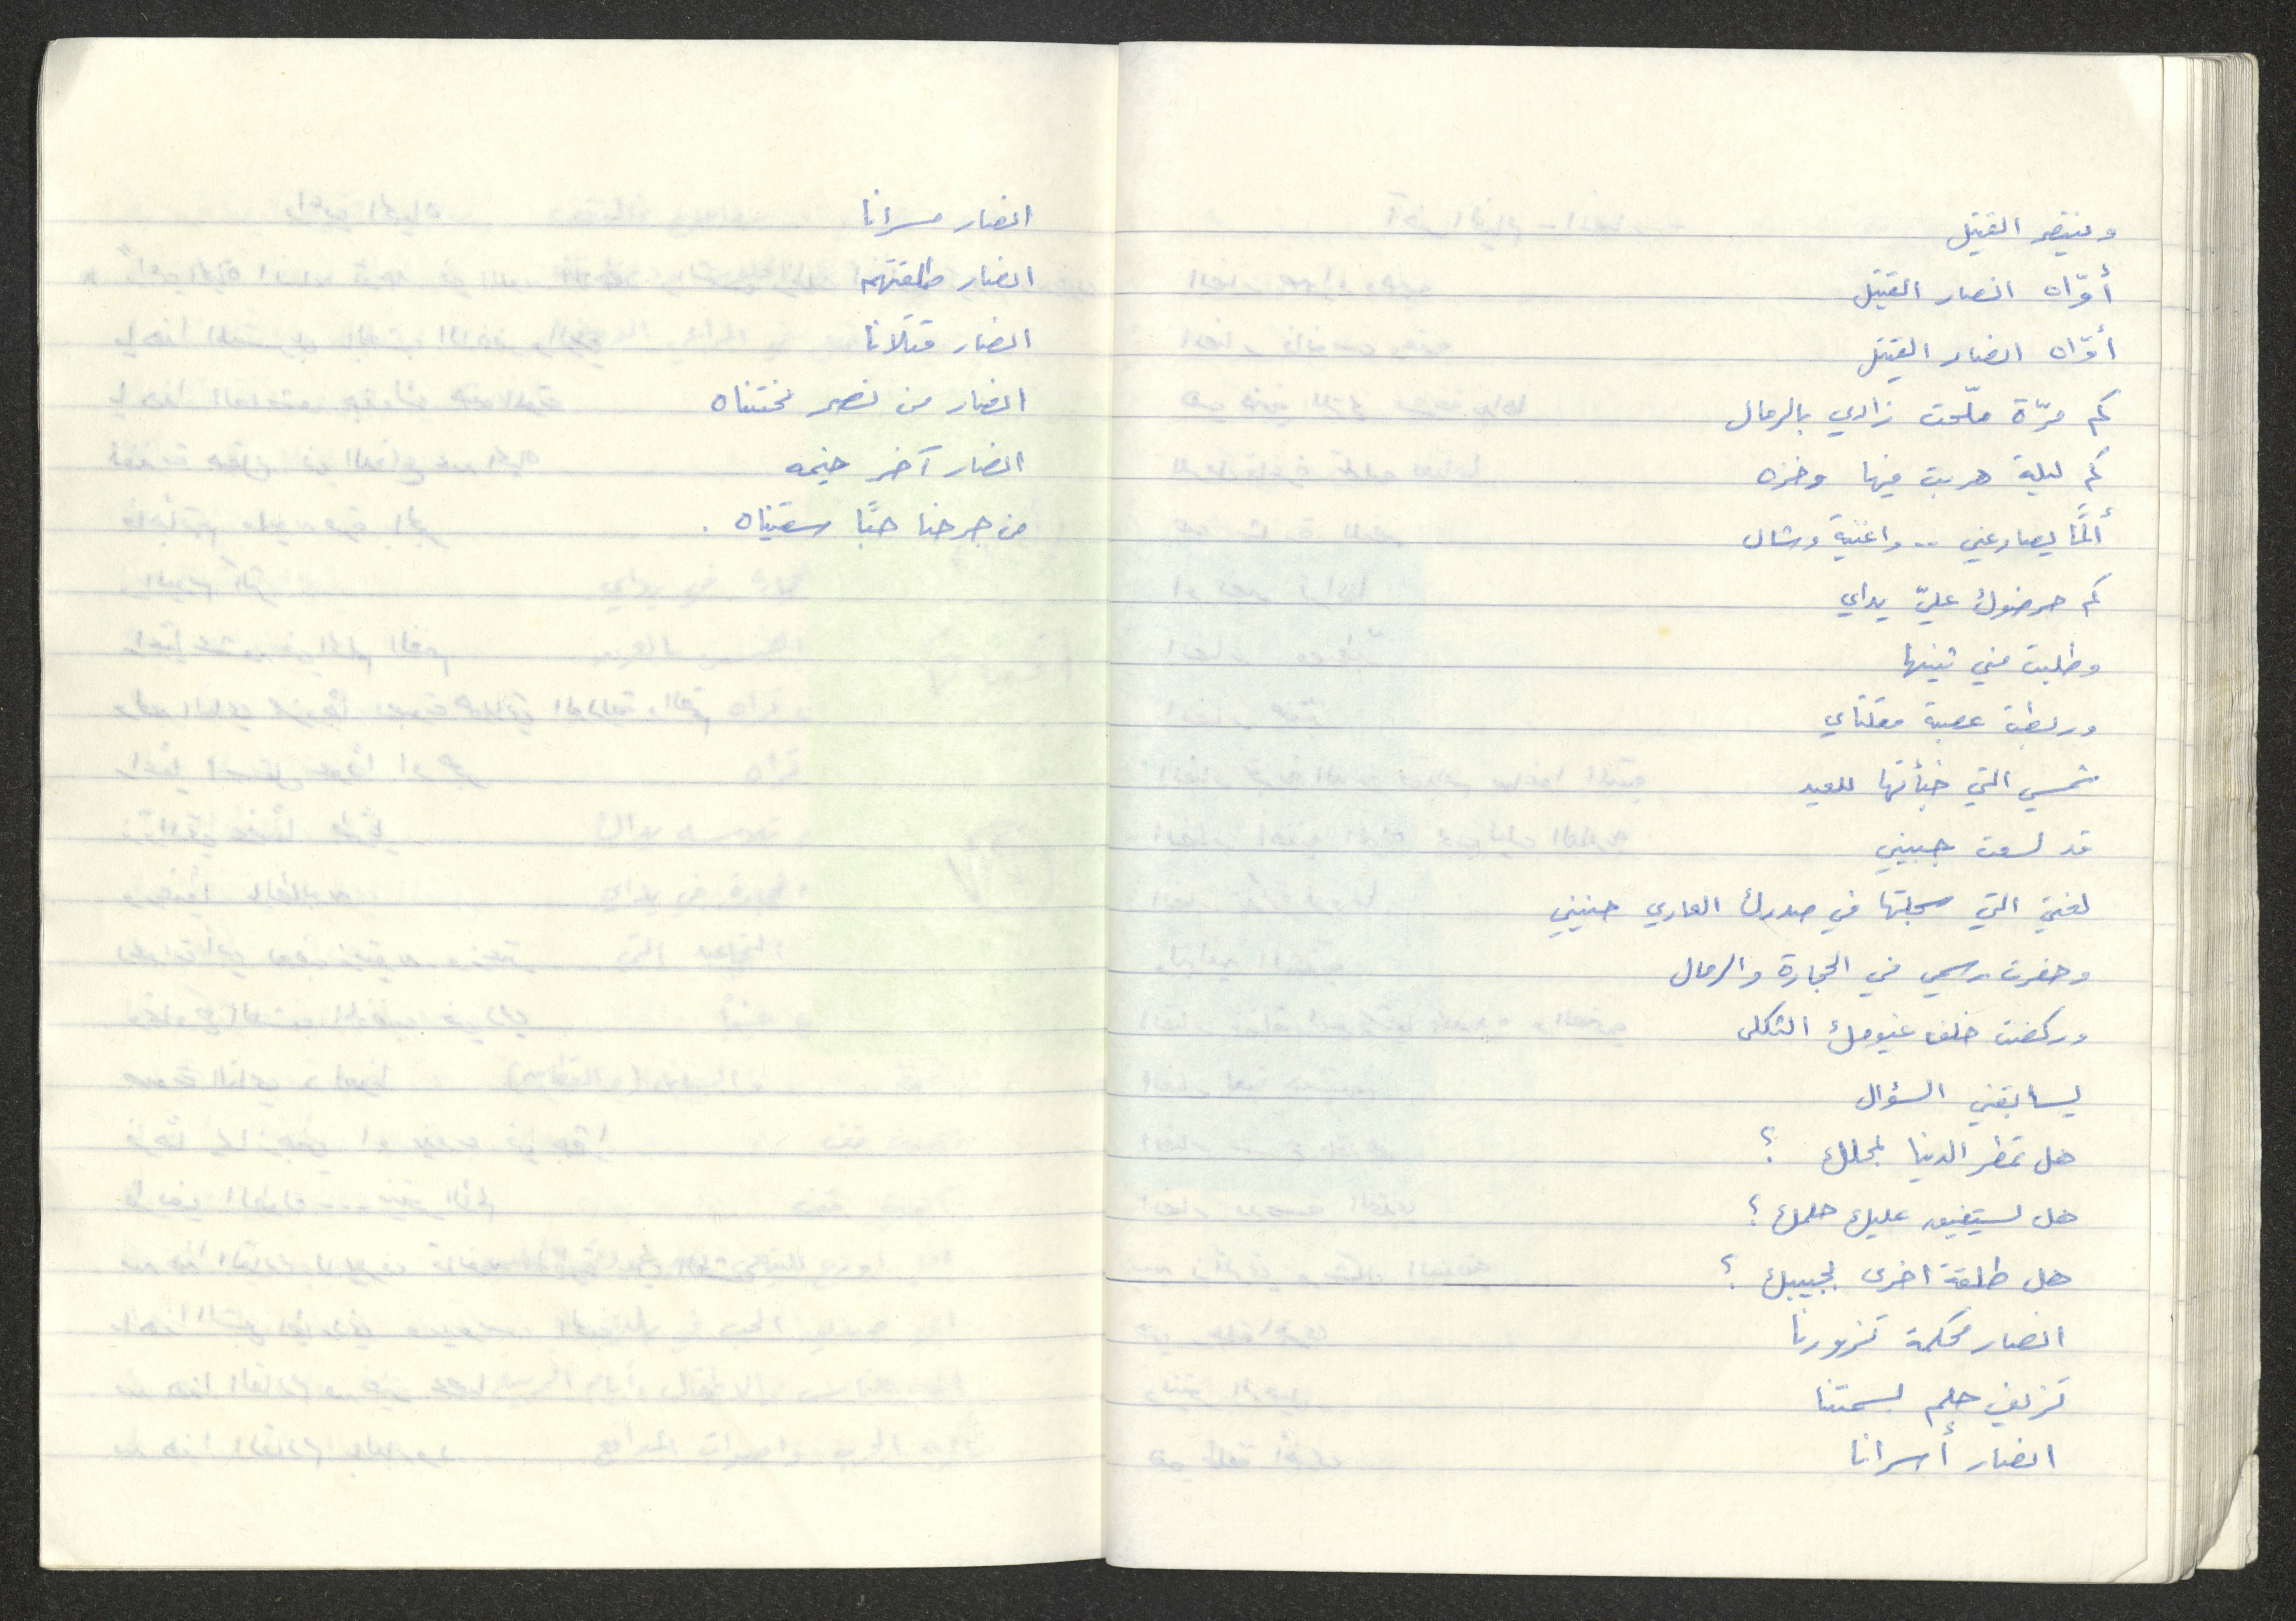 وينتصر القتيل
أوّاه انصار القتيل
أوّاه انصار القتيل
كم مرّة ملّحت زادي بالرمال
كم ليلة هربت فيها وخزه
ألمًا يصارعني .. واغنية وشال
كم حرضوك عليّ يداي
وطلبت مني تينها
وربطت عصبة مقلتاي
شمسي التي خبأتها للعيد
قد لسعت جبيني
لغتي التي سجلتها في صدرك العاري حنيني
وحفرت رسمي في الحجارة والرمال
وركضت خلف غيومك الثكلى
يسابقني السؤال
هل تمطر الدنيا لمحلك ؟
هل يستفيق عليك حلمك ؟
هل طلقة اخرى لجيبك ؟
انصار محكمة تزورنا
تزيف حلم بسمتنا
انصار أسرانا
انصار مسرانا
انصار طلقتهم
انصار قتلانا
انصار من نصر نحتناه
انصار آخر خيمه
من جرحنا حبًا سقيناه .